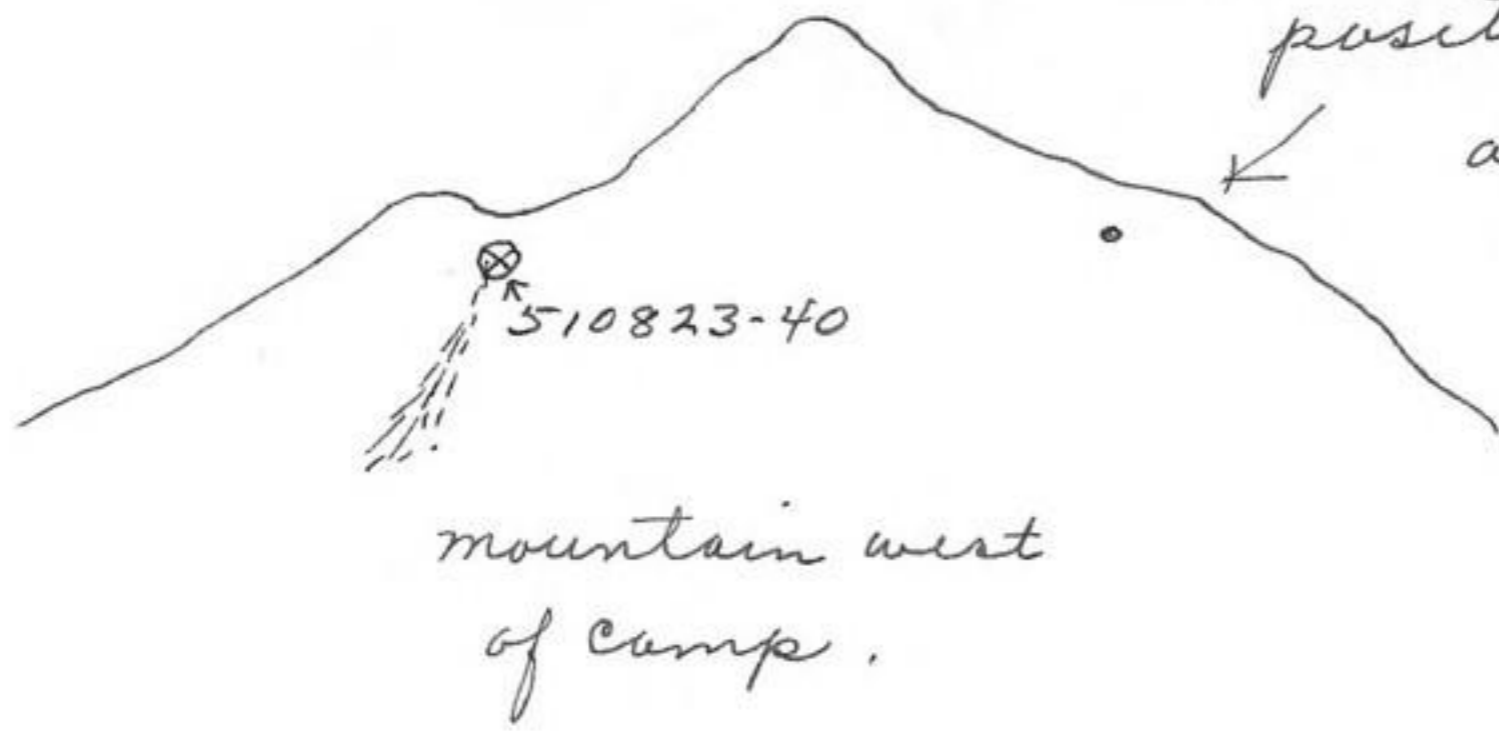 510823-40
mountain west
of camp.